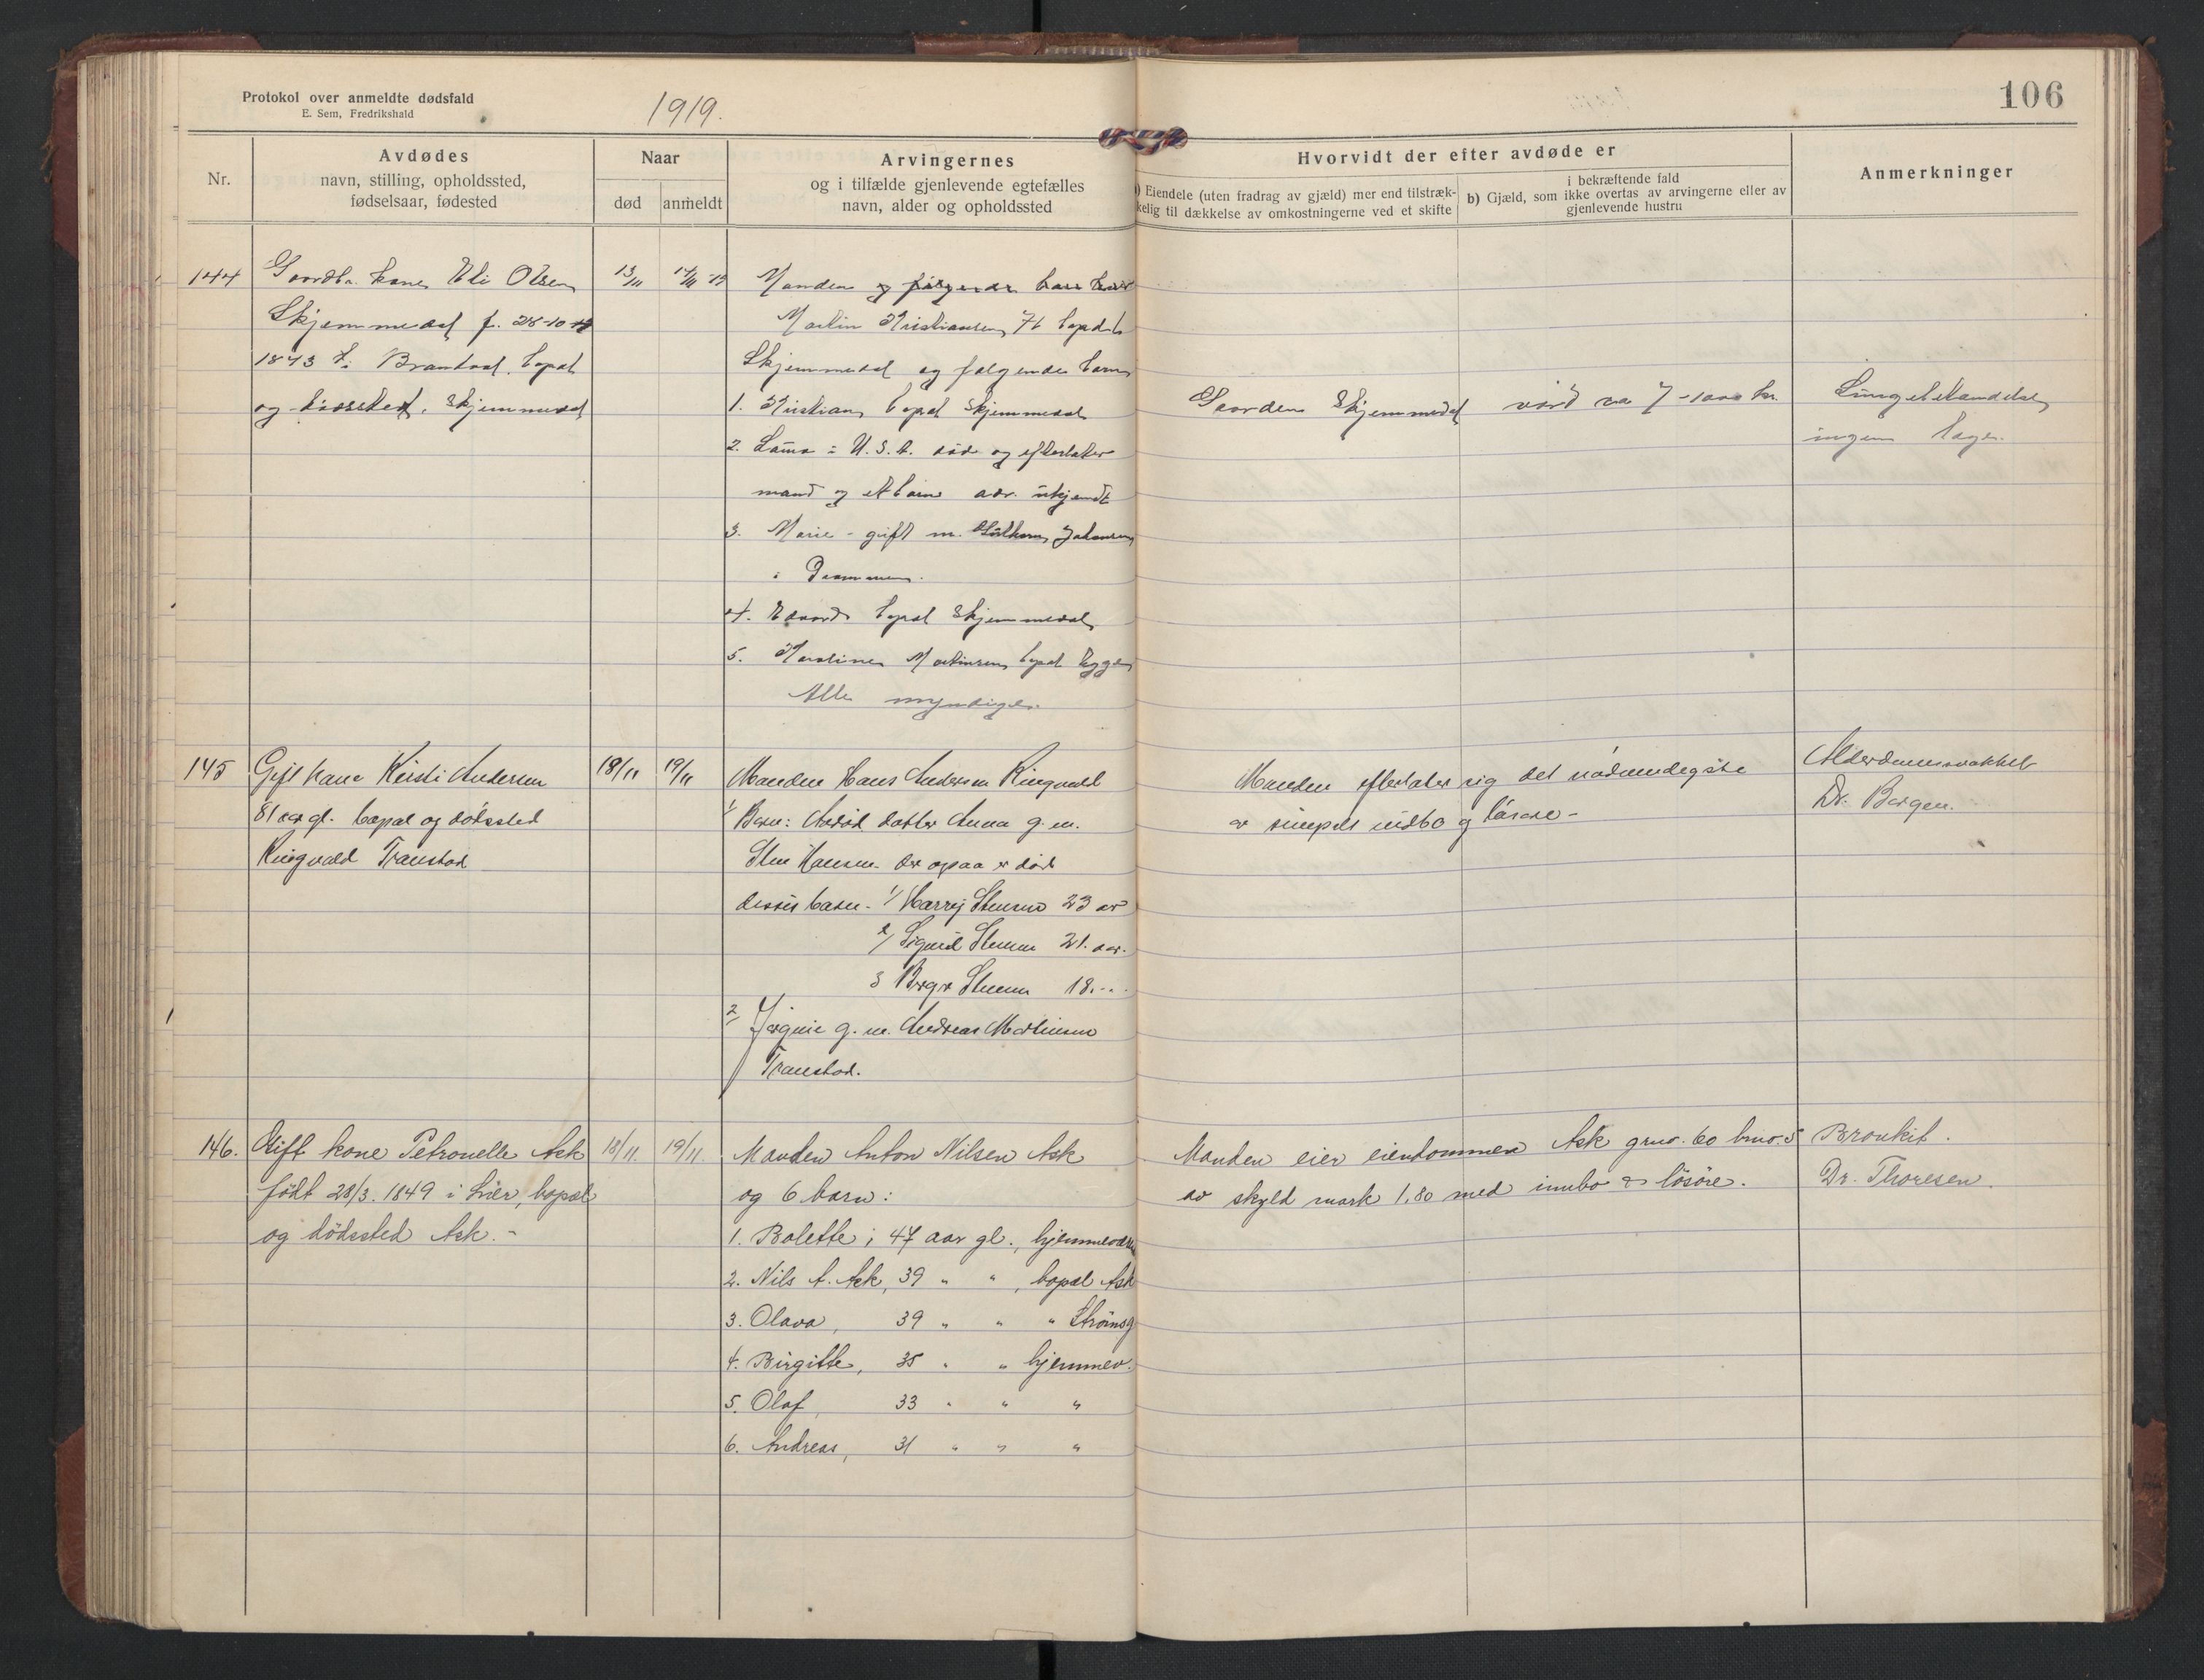 Protokol over anmeldte dødsfald
E. Sem, Fredrikshald
1919.
106
Nr.
Avdødes
navn, stilling, opholdssted,
fødselsaar, fødested
Naar
død
anmeldt
Arvingernes
og i tilfælde gjenlevende egtefælles
navn, alder og opholdssted
Hvorvidt der efter avdøde er
a) Eiendele (uten fradrag av gjæld) mer end tilstræk-
kelig til dækkelse av omkostningerne ved et skifte
i bekræftende fald
b) Gjæld, som ikke overtas av arvingerne eller av
gjenlevende hustru
Anmerkninger
144
Gaardbr. kone Eli Olsen
Skjemmedal f. 28-10
1843 i Bramdal. bopæl
og dødssted. Skjemmedal
13/11
14/11 19
Manden og følgende barn
Martin Kristiansen, 76 bopæl
Skjemmedal og følgende barn
1. Kristian, bopæl Skjemmedal
2. Laura i U.S.A. død og efterlater
mand og et barn adr. ukjendt
3. Marie - gift m. Johansen
i Drammen.
4. Edvard bopæl Skjemmedal
5. Karoline Martinsen, bopæl
Alle myndige.
Gaarden Skjemmedal værd ca 7-1000 kr.
Lungebetændelse
ingen læge.
145
Gift kone Kirsti Andersen
81 aar gl. bopæl og dødssted
Ringvold Tranbod
18/11
19/11
Manden Hans Andersen Ringvold
1/ Barn: Avdød datter Anna g.m.
Sten Hansen. der ogsaa er død
disses barn. 1/ Harry Stensen 23 aar
2/ Sigurd Stensen 21. aar.
3 Birger Stensen 18. "
2/ Jørgine g. m. Andreas Martinsen
Tranbod.
Manden efterlater sig det nødvendigste
av simpelt indbo og løsøre -
Alderdomssvakhet
Dr. Borgen.
146.
Gift kone Petronelle Ask
født 28/3. 1849 i Lier, bopæl
og dødssted Ask. -
18/11.
19/11.
Manden Anton Nilsen Ask
og 6 barn:
1. Bolette, 47 aar gl., hjemmeværende
2. Nils A. Ask, 39 " " , bopæl Ask
3. Olava, 39 " " " Strømsg
4. Birgitte, 35 " " hjemmev.
5. Olaf, 33 " " "
6. Andreas, 31 " " "
Manden eier eiendommen Ask gno. 60 bno. 5
av skyld mark 1,80 med innbo & løsøre.
Bronkit.
Dr. Thoresen.